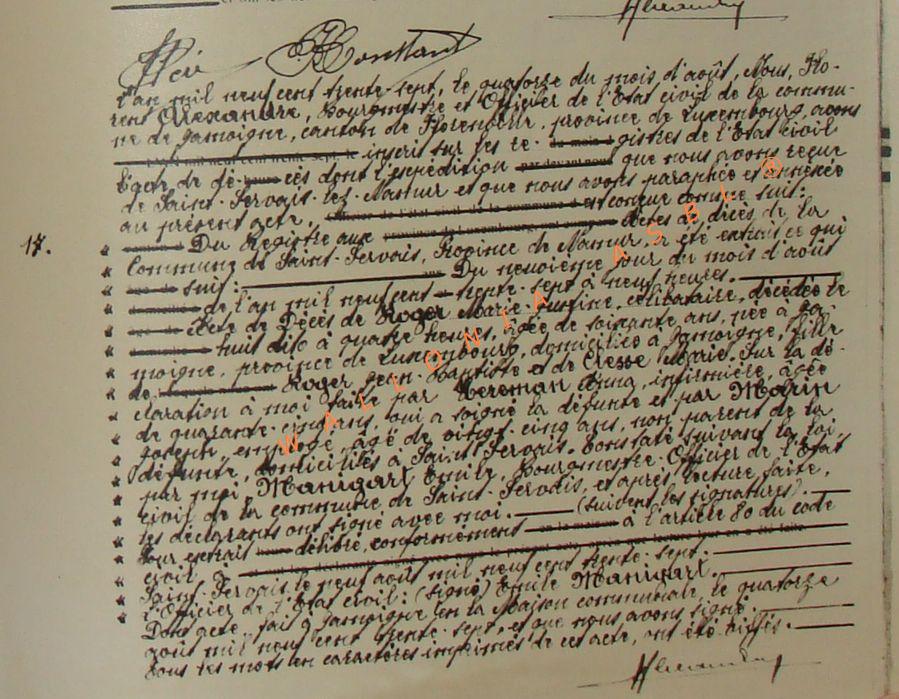 Constant
L'an mil neuf cent trente-sept, le quatorze du mois d'août, Nous, Flo-
rent Alexandre, Bourgmestre et Officier de l'Etat civil de la commu-
ne de Jamoigne, canton de Florenville, province de Luxembourg, avons
inscrit sur les re- gistres de l'Etat civil
l'acte de dé- cès dont l'expédition par devant nous que nous avons reçue
de Saint-Servais-lez-Namur et que nous avons paraphée et annexée
au présent acte, est conçue comme suit:
17.
" Du Registre aux Actes de décès de la
" Commune de Saint-Servais, Province de Namur, a été extrait ce qui
" suit: Du neuvième jour du mois d'août
" de l'an mil neuf cent trente-sept à neuf heures.
" Acte de Décès de Roger Marie Justine, célibataire, décédée le
" huit dito à quatre heures, âgée de soixante ans, née à Ja-
" moigne, province de Luxembourg, domiciliée à Jamoigne, fille
" de Roger Jean-Baptiste et de Marie. Sur la dé-
" claration à moi faite par Anna, infirmière, âgée
" de quarante-cinq ans, qui a soigné la défunte et par Marin
" employé, âgé de vingt-cinq ans, non parent de la
" défunte, domiciliés à Saint-Servais. Constaté suivant la loi,
" par moi, Manigart Emile, Bourgmestre-Officier de l'Etat
" civil de la commune de Saint-Servais, et après lecture faite,
" les déclarants ont signé avec moi. (suivent les signatures).
" Pour extrait délivré, conformément à l'article 80 du code
" civil.
" Saint-Servais, le neuf août mil neuf cent trente-sept.
" l'Officier de l'Etat civil: (signé) Emile Manigart.
" Dont acte, fait à Jamoigne en la Maison communale, le quatorze
août mil neuf cent trente-sept, et que nous avons signé.
Tous les mots en caractères imprimés de cet acte, ont été biffés.
WALLONIA ASBL ®